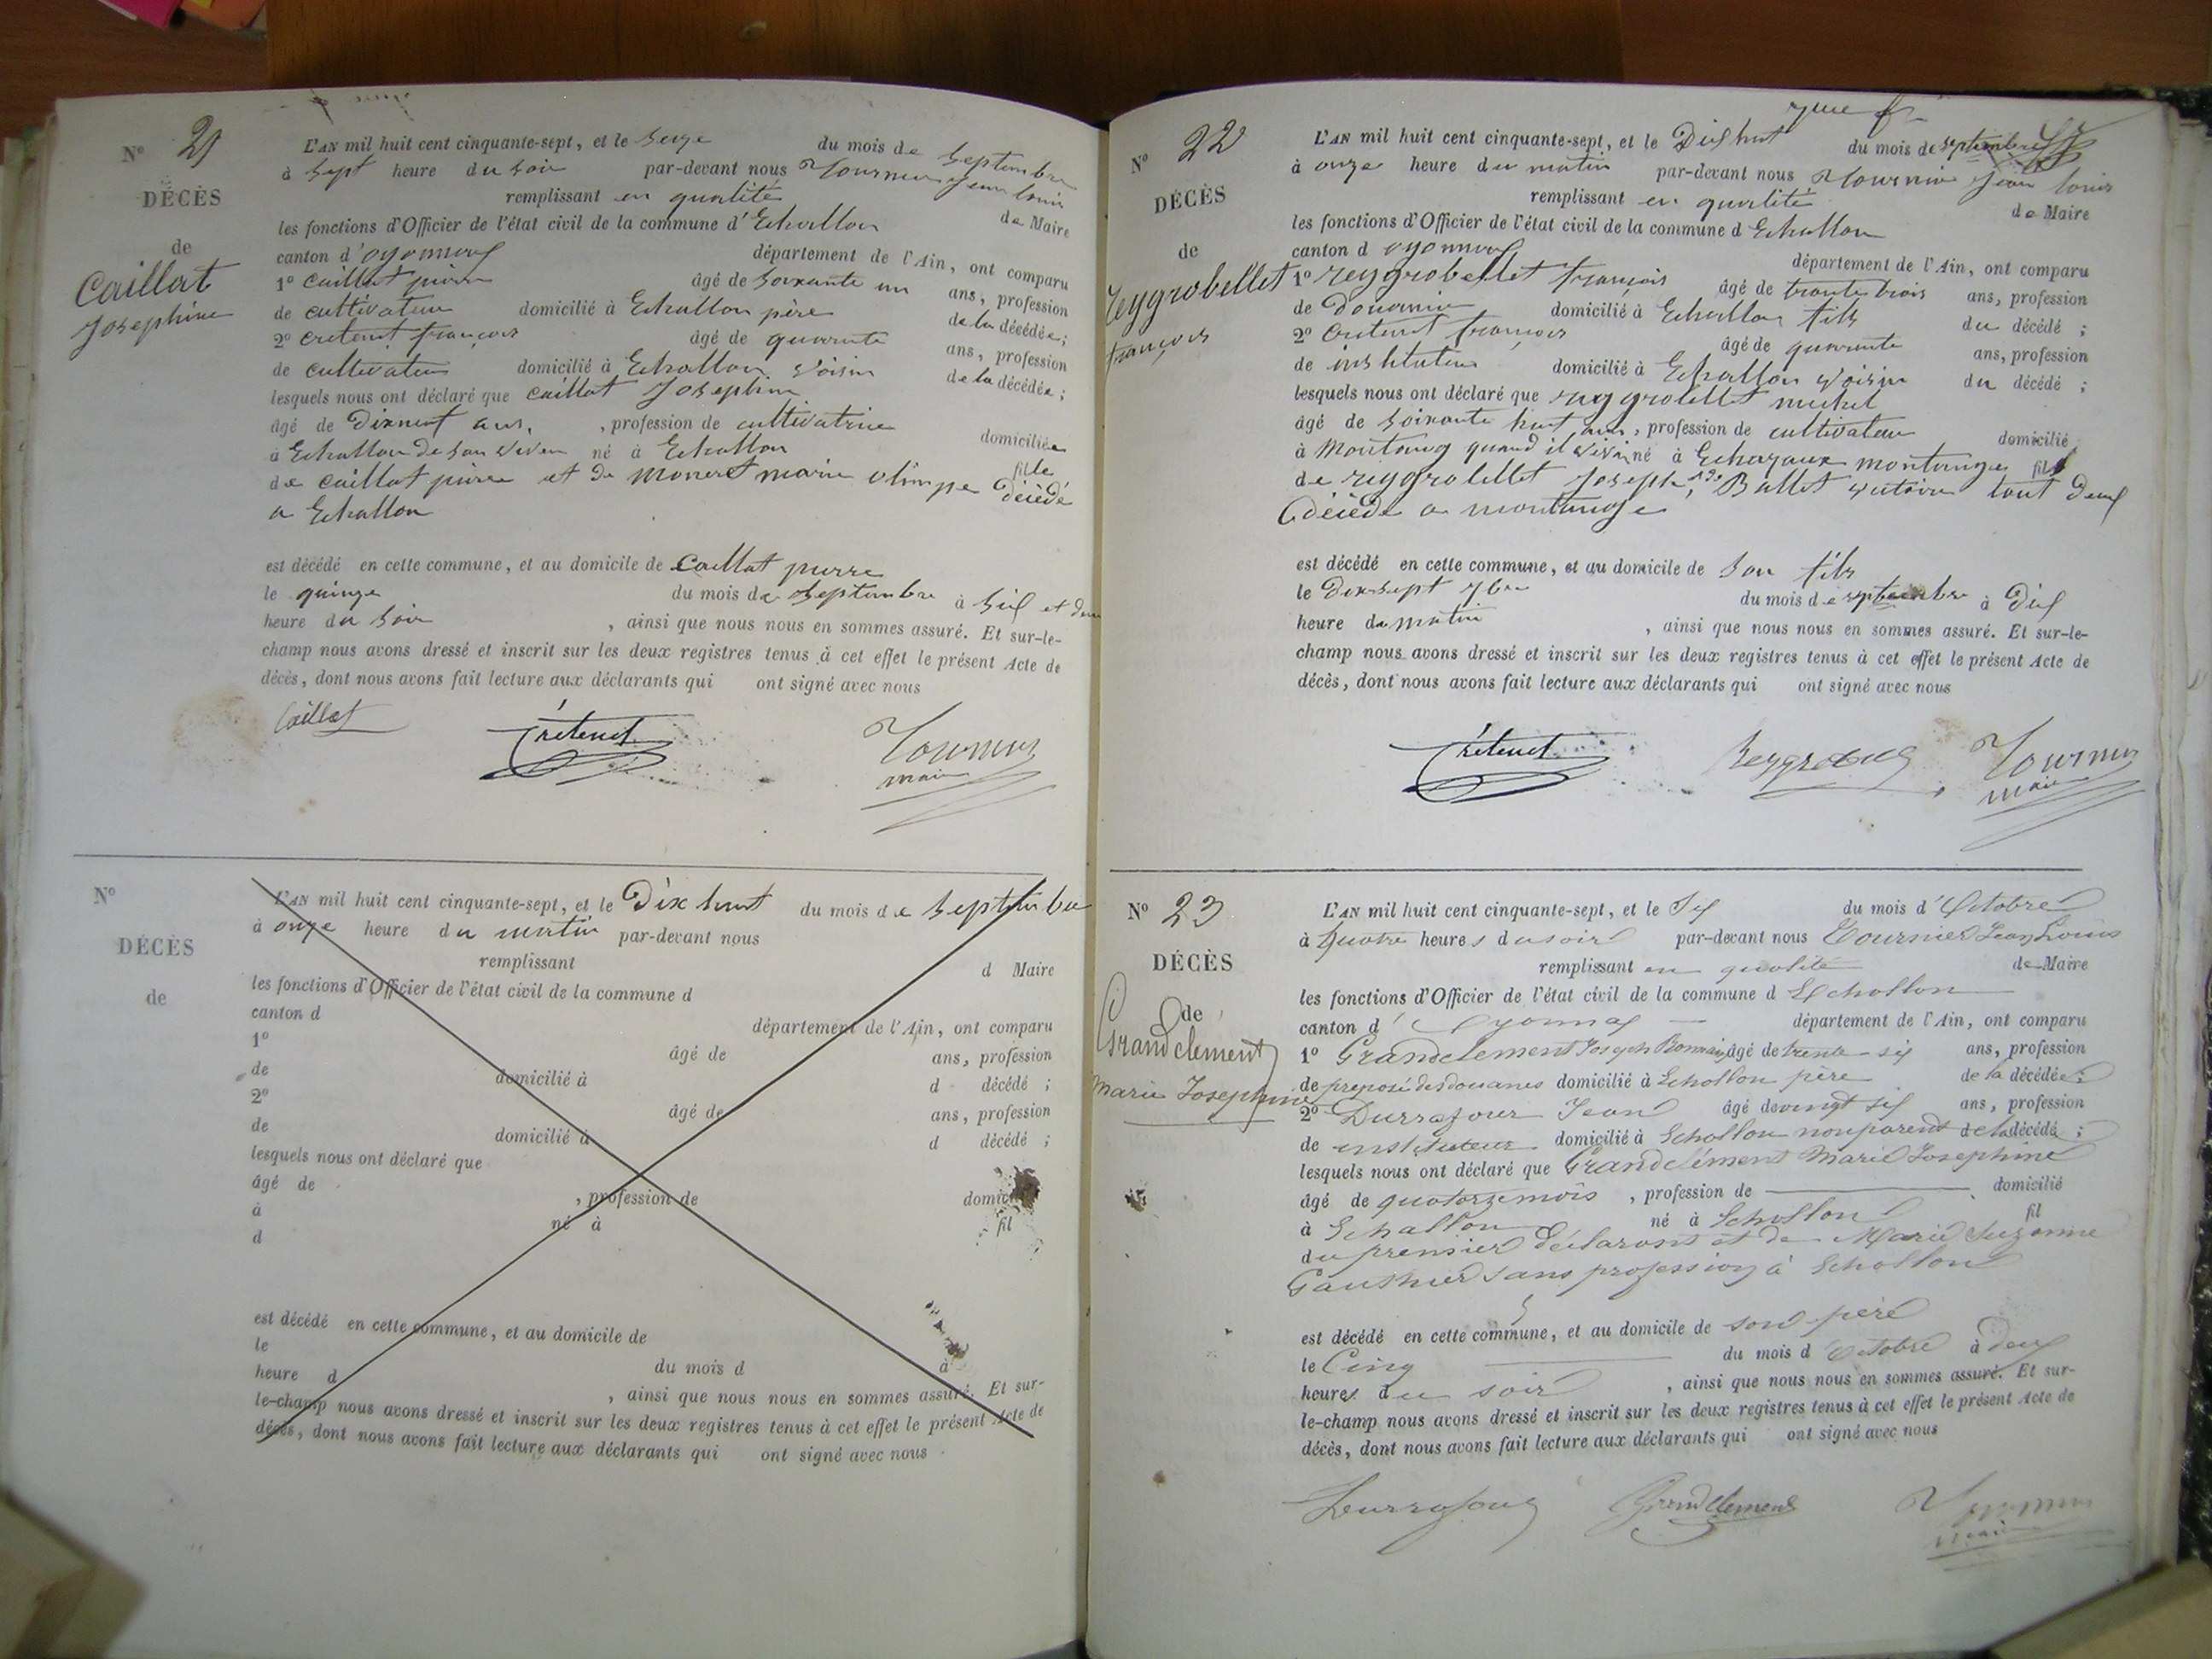 N° 21
DÉCÈS
de
Caillat
Josephine
L'AN mil huit cent cinquante-sept, et le Seize du mois de Septembre
à Sept heure du Soir par-devant nous Tournier Jean louis
remplissant en qualité de Maire
les fonctions d'Officier de l'état civil de la commune d'Echallon
canton d'oyonnax département de l'Ain, ont comparu
1° Caillat pierre âgé de Soixante un ans, profession
de cultivateur domicilié à Echallon père de la décédée;
2° cretenet françois âgé de quarante ans, profession
de cultivateur domicilié à Echallon voisin de la décédée;
lesquels nous ont déclaré que Caillat Josephine
âgé de Dixneuf ans, , profession de cultivatrice domiciliée
à Echallon de Son viven né à Echallon fille
de Caillat pierre et de Moneret marie olimpe décédé
a Echallon
est décédé en cette commune, et au domicile de Caillat pierre
le quinze du mois de Septembre à Six et demi
heure du Soir , ainsi que nous nous en sommes assuré. Et sur-le-
champ nous avons dressé et inscrit sur les deux registres tenus à cet effet le présent Acte de
décès, dont nous avons fait lecture aux déclarants qui ont signé avec nous
Caillat Crétenet Tournier
maire
N°
DÉCÈS
de
L'AN mil huit cent cinquante-sept, et le Dix huit du mois de Septembre
à onze heure du matin par-devant nous
remplissant d Maire
les fonctions d'Officier de l'état civil de la commune d
canton d département de l'Ain, ont comparu
1° âgé de ans, profession
de domicilié à d décédé ;
2° âgé de ans, profession
de domicilié à d décédé ;
lesquels nous ont déclaré que
âgé de , profession de domicilié
à né à fil
d
est décédé en cette commune, et au domicile de
le du mois d à
heure d , ainsi que nous nous en sommes assuré. Et sur-
le-champ nous avons dressé et inscrit sur les deux registres tenus à cet effet le présent Acte de
décès, dont nous avons fait lecture aux déclarants qui ont signé avec nous
N° 22
DÉCÈS
de
Reygrobellet
françois
L'AN mil huit cent cinquante-sept, et le Dix huit du mois de Septembre
à onze heure du matin par-devant nous Tournier Jean louis
remplissant en qualité de Maire
les fonctions d'Officier de l'état civil de la commune d Echallon
canton d oyonnax département de l'Ain, ont comparu
1° reygrobellet françois âgé de trente trois ans, profession
de Douanier domicilié à Echallon fils du décédé ;
2° Cretenet françois âgé de quarante ans, profession
de instituteur domicilié à Echallon voisin du décédé ;
lesquels nous ont déclaré que reygrobellet michel
âgé de Soixante huit ans, profession de cultivateur domicilié
à Montang quand il vivai né à Echazaux montange fils
de reygrobellet Joseph, Ballet victoire tout deux
décédé a montange
est décédé en cette commune, et au domicile de Son fils
le Dix sept 7bre du mois de septembre à Dix
heure du matin , ainsi que nous nous en sommes assuré. Et sur-le-
champ nous avons dressé et inscrit sur les deux registres tenus à cet effet le présent Acte de
décès, dont nous avons fait lecture aux déclarants qui ont signé avec nous
Crétenet Tournier
maire
N° 23
DÉCÈS
de
Grandclement
Marie Josephine
L'AN mil huit cent cinquante-sept, et le Six du mois d'Octobre
à Quatre heures du soir par-devant nous Tournier Jean Louis
remplissant en qualité de Maire
les fonctions d'Officier de l'état civil de la commune d Echallon
canton d'Oyonnax département de l'Ain, ont comparu
1° Grandclement Joseph Romain âgé de trente-six ans, profession
de preposé des douanes domicilié à Echallon père de la décédée;
2° Durrafour Jean âgé de vingt six ans, profession
de instituteur domicilié à Echallon non parent de la décédé ;
lesquels nous ont déclaré que Grandclément Marie Josephine
âgé de quatorze mois , profession de domicilié
à Echallon né à Echallon fil
du premier déclarant et de Marie Suzanne
Gauthier sans profession à Echallon
est décédé en cette commune, et au domicile de son père
le Cinq du mois d Octobre à deux
heures du soir , ainsi que nous nous en sommes assuré. Et sur-
le-champ nous avons dressé et inscrit sur les deux registres tenus à cet effet le présent Acte de
décès, dont nous avons fait lecture aux déclarants qui ont signé avec nous
Durrafour Grandclement Tournier
maire